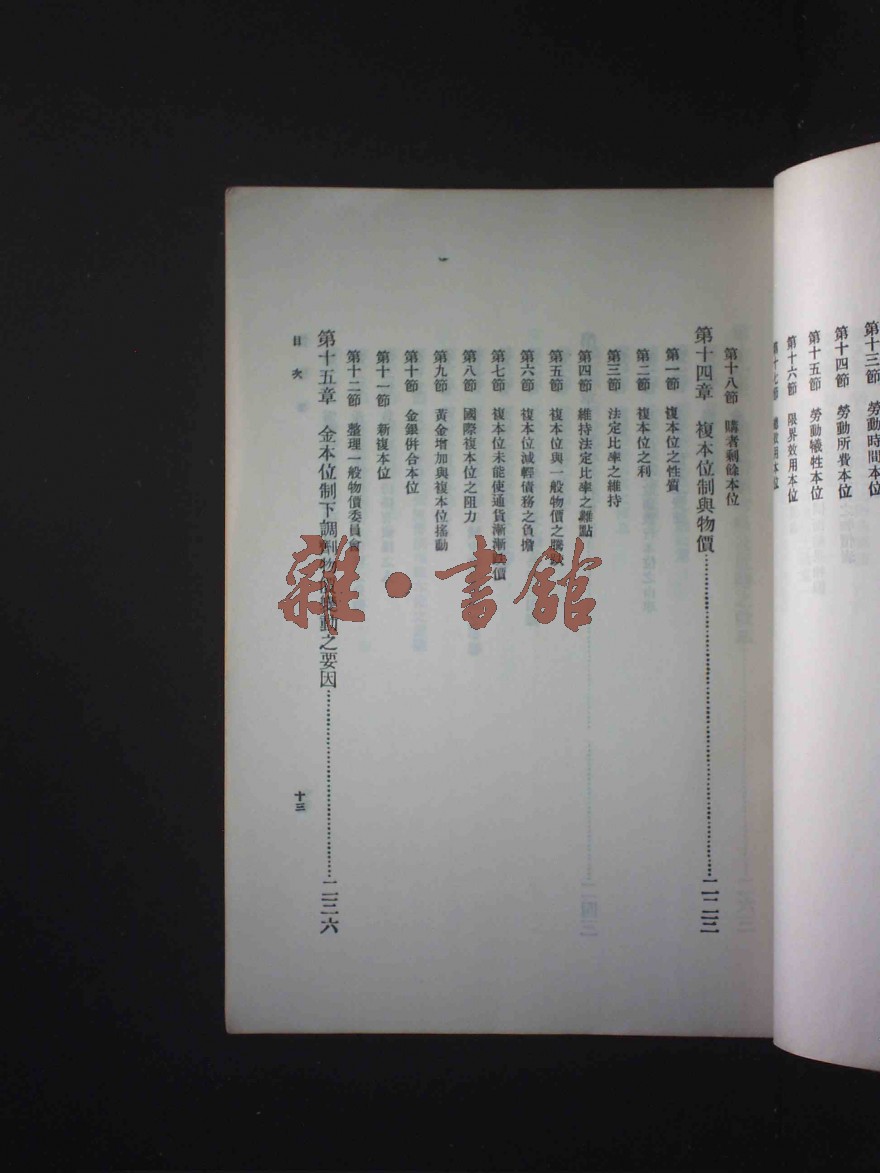 第十三節　勞動時間本位
第十四節　勞動所費本位
第十五節　勞動犧牲本位
第十六節　限界效用本位
第十七節　總效用本位
第十八節　購者剩餘本位
第十四章　複本位制與物價……………………二一三
第一節　複本位之性質
第二節　複本位之利
第三節　法定比率之維持
第四節　維持法定比率之難點
第五節　複本位與一般物價之騰跌
第六節　複本位減輕債務之負擔
第七節　複本位未能使通貨漸漸跌價
第八節　國際複本位之阻力
第九節　黃金增加與複本位搖動
第十節　金銀併合本位
第十一節　新複本位
第十二節　整理一般物價委員會
第十五章　金本位制下調劑物價變動之要因……………………二二六
目次
十三
雜·書館